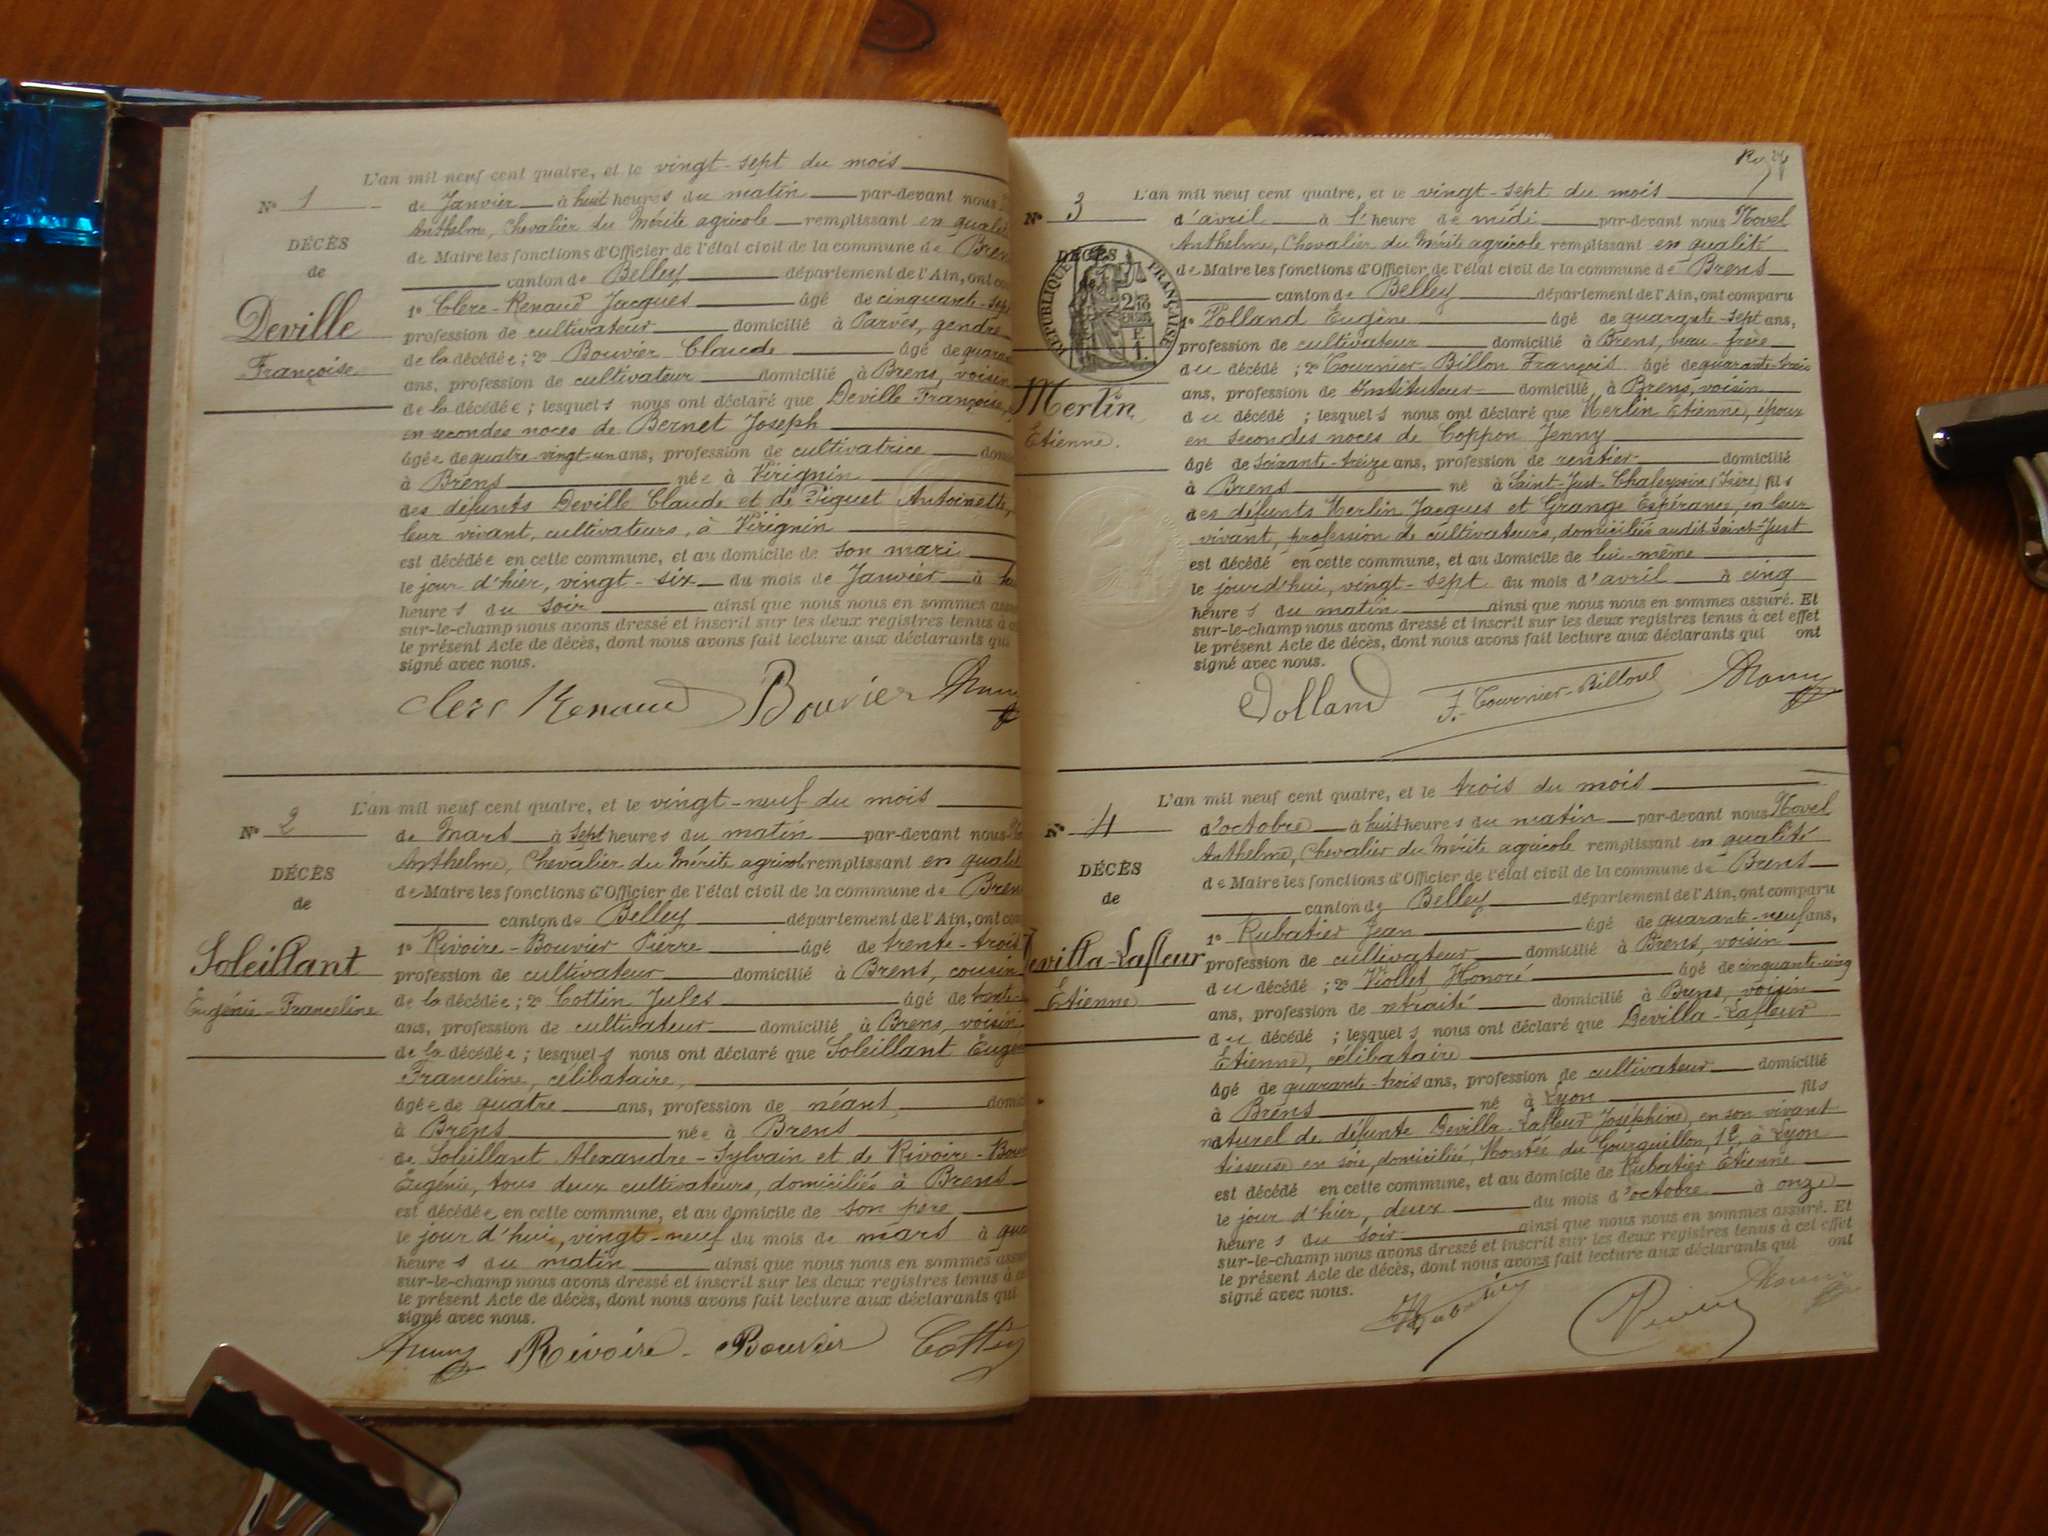 L'an mil neuf cent quatre, et le vingt-sept du mois
N° 1 de Janvier à huit heures du matin par-devant nous
Anthelme, Chevalier du Mérite agricole remplissant en qualité
DÉCÈS
de Maire les fonctions d'Officier de l'état civil de la commune de Brens
de
canton de Belley département de l'Ain, ont
1° Clerc-Renaud Jacques âgé de cinquante-sept
Deville
profession de cultivateur domicilié à Parves, gendre
de la décédée ; 2° Bouvier Claude âgé de
Françoise
ans, profession de cultivateur domicilié à Brens, voisin
de la décédée ; lesquels nous ont déclaré que Deville Françoise,
en secondes noces de Bernet Joseph
âgée de quatre-vingt-un ans, profession de cultivatrice
à Brens née à Virignin
des défunts Deville Claude et de Piguet Antoinette,
leur vivant, cultivateurs, à Virignin
est décédée en cette commune, et au domicile de son mari
le jour d'hier, vingt-six du mois de Janvier à
heures du soir ainsi que nous nous en sommes
sur-le-champ nous avons dressé et inscrit sur les deux registres tenus à
le présent Acte de décès, dont nous avons fait lecture aux déclarants qui
signé avec nous.
Clerc Renaud Bouvier
L'an mil neuf cent quatre, et le vingt-neuf du mois
N° 2 de Mars à sept heures du matin par-devant nous
Anthelme, Chevalier du Mérite agricole remplissant en qualité
DÉCÈS
de Maire les fonctions d'Officier de l'état civil de la commune de Brens
de
canton de Belley département de l'Ain, ont
1° Rivoire-Bouvier Pierre âgé de trente-trois
Soleillant
profession de cultivateur domicilié à Brens, cousin
de la décédée ; 2° Cottin Jules âgé de
Eugénie-Franceline
ans, profession de cultivateur domicilié à Brens, voisin
de la décédée ; lesquels nous ont déclaré que Soleillant
Franceline, célibataire,
âgée de quatre ans, profession de néant
à Brens née à Brens
de Soleillant Alexandre-Sylvain et de Rivoire-
Eugénie, tous deux cultivateurs, domiciliés à Brens
est décédée en cette commune, et au domicile de son père
le jour d'hui, vingt-neuf du mois de mars à
heures du matin ainsi que nous nous en sommes
sur-le-champ nous avons dressé et inscrit sur les deux registres tenus à
le présent Acte de décès, dont nous avons fait lecture aux déclarants qui
signé avec nous.
Rivoire-Bouvier Cottin
L'an mil neuf cent quatre, et le vingt-sept du mois
N° 3 d'avril à l'heure de midi par-devant nous Novel
Anthelme, Chevalier du Mérite agricole remplissant en qualité
DÉCÈS
RÉPUBLIQUE FRANÇAISE
de Maire les fonctions d'Officier de l'état civil de la commune de Brens
canton de Belley département de l'Ain, ont comparu
1° Volland Eugène âgé de quarante-sept ans,
profession de cultivateur domicilié à Brens, beau-frère
du décédé ; 2° Tournier-Billon François âgé de quarante-trois
ans, profession de Instituteur domicilié à Brens, voisin
Merlin
du décédé ; lesquels nous ont déclaré que Merlin Etienne, époux
Etienne.
en secondes noces de Coppon Jenny
âgé de soixante-treize ans, profession de rentier domicilié
à Brens né à Saint-Just-Chaleyssin (Isère) fils
des défunts Merlin Jacques et Grange Espérance, en leur
vivant, profession de cultivateurs, domiciliés audit Saint-Just
est décédé en cette commune, et au domicile de lui-même
le jour d'hui, vingt-sept du mois d'avril à cinq
heures du matin ainsi que nous nous en sommes assuré. Et
sur-le-champ nous avons dressé et inscrit sur les deux registres tenus à cet effet
le présent Acte de décès, dont nous avons fait lecture aux déclarants qui ont
signé avec nous.
Volland F. Tournier-Billon
L'an mil neuf cent quatre, et le trois du mois
N° 4 d'octobre à huit heures du matin par-devant nous Novel
Anthelme, Chevalier du Mérite agricole remplissant en qualité
DÉCÈS
de Maire les fonctions d'Officier de l'état civil de la commune de Brens
de
canton de Belley département de l'Ain, ont comparu
1° Rubatier Jean âgé de quarante-neuf ans,
Devilla-Lafleur
profession de cultivateur domicilié à Brens, voisin
du décédé ; 2° Viollet Honoré âgé de cinquante-cinq
Etienne
ans, profession de retraité domicilié à Brens, voisin
du décédé ; lesquels nous ont déclaré que Devilla-Lafleur
Etienne, célibataire
âgé de quarante-trois ans, profession de cultivateur domicilié
à Brens né à Lyon fils
naturel de défunte Devilla-Lafleur Joséphine, en son vivant
tisseuse en soie, domiciliée, Montée du Gourguillon, 12, à Lyon
est décédé en cette commune, et au domicile de Rubatier Etienne
le jour d'hier, deux du mois d'octobre à onze
heures du soir ainsi que nous nous en sommes assuré. Et
sur-le-champ nous avons dressé et inscrit sur les deux registres tenus à cet effet
le présent Acte de décès, dont nous avons fait lecture aux déclarants qui ont
signé avec nous.
Rubatier